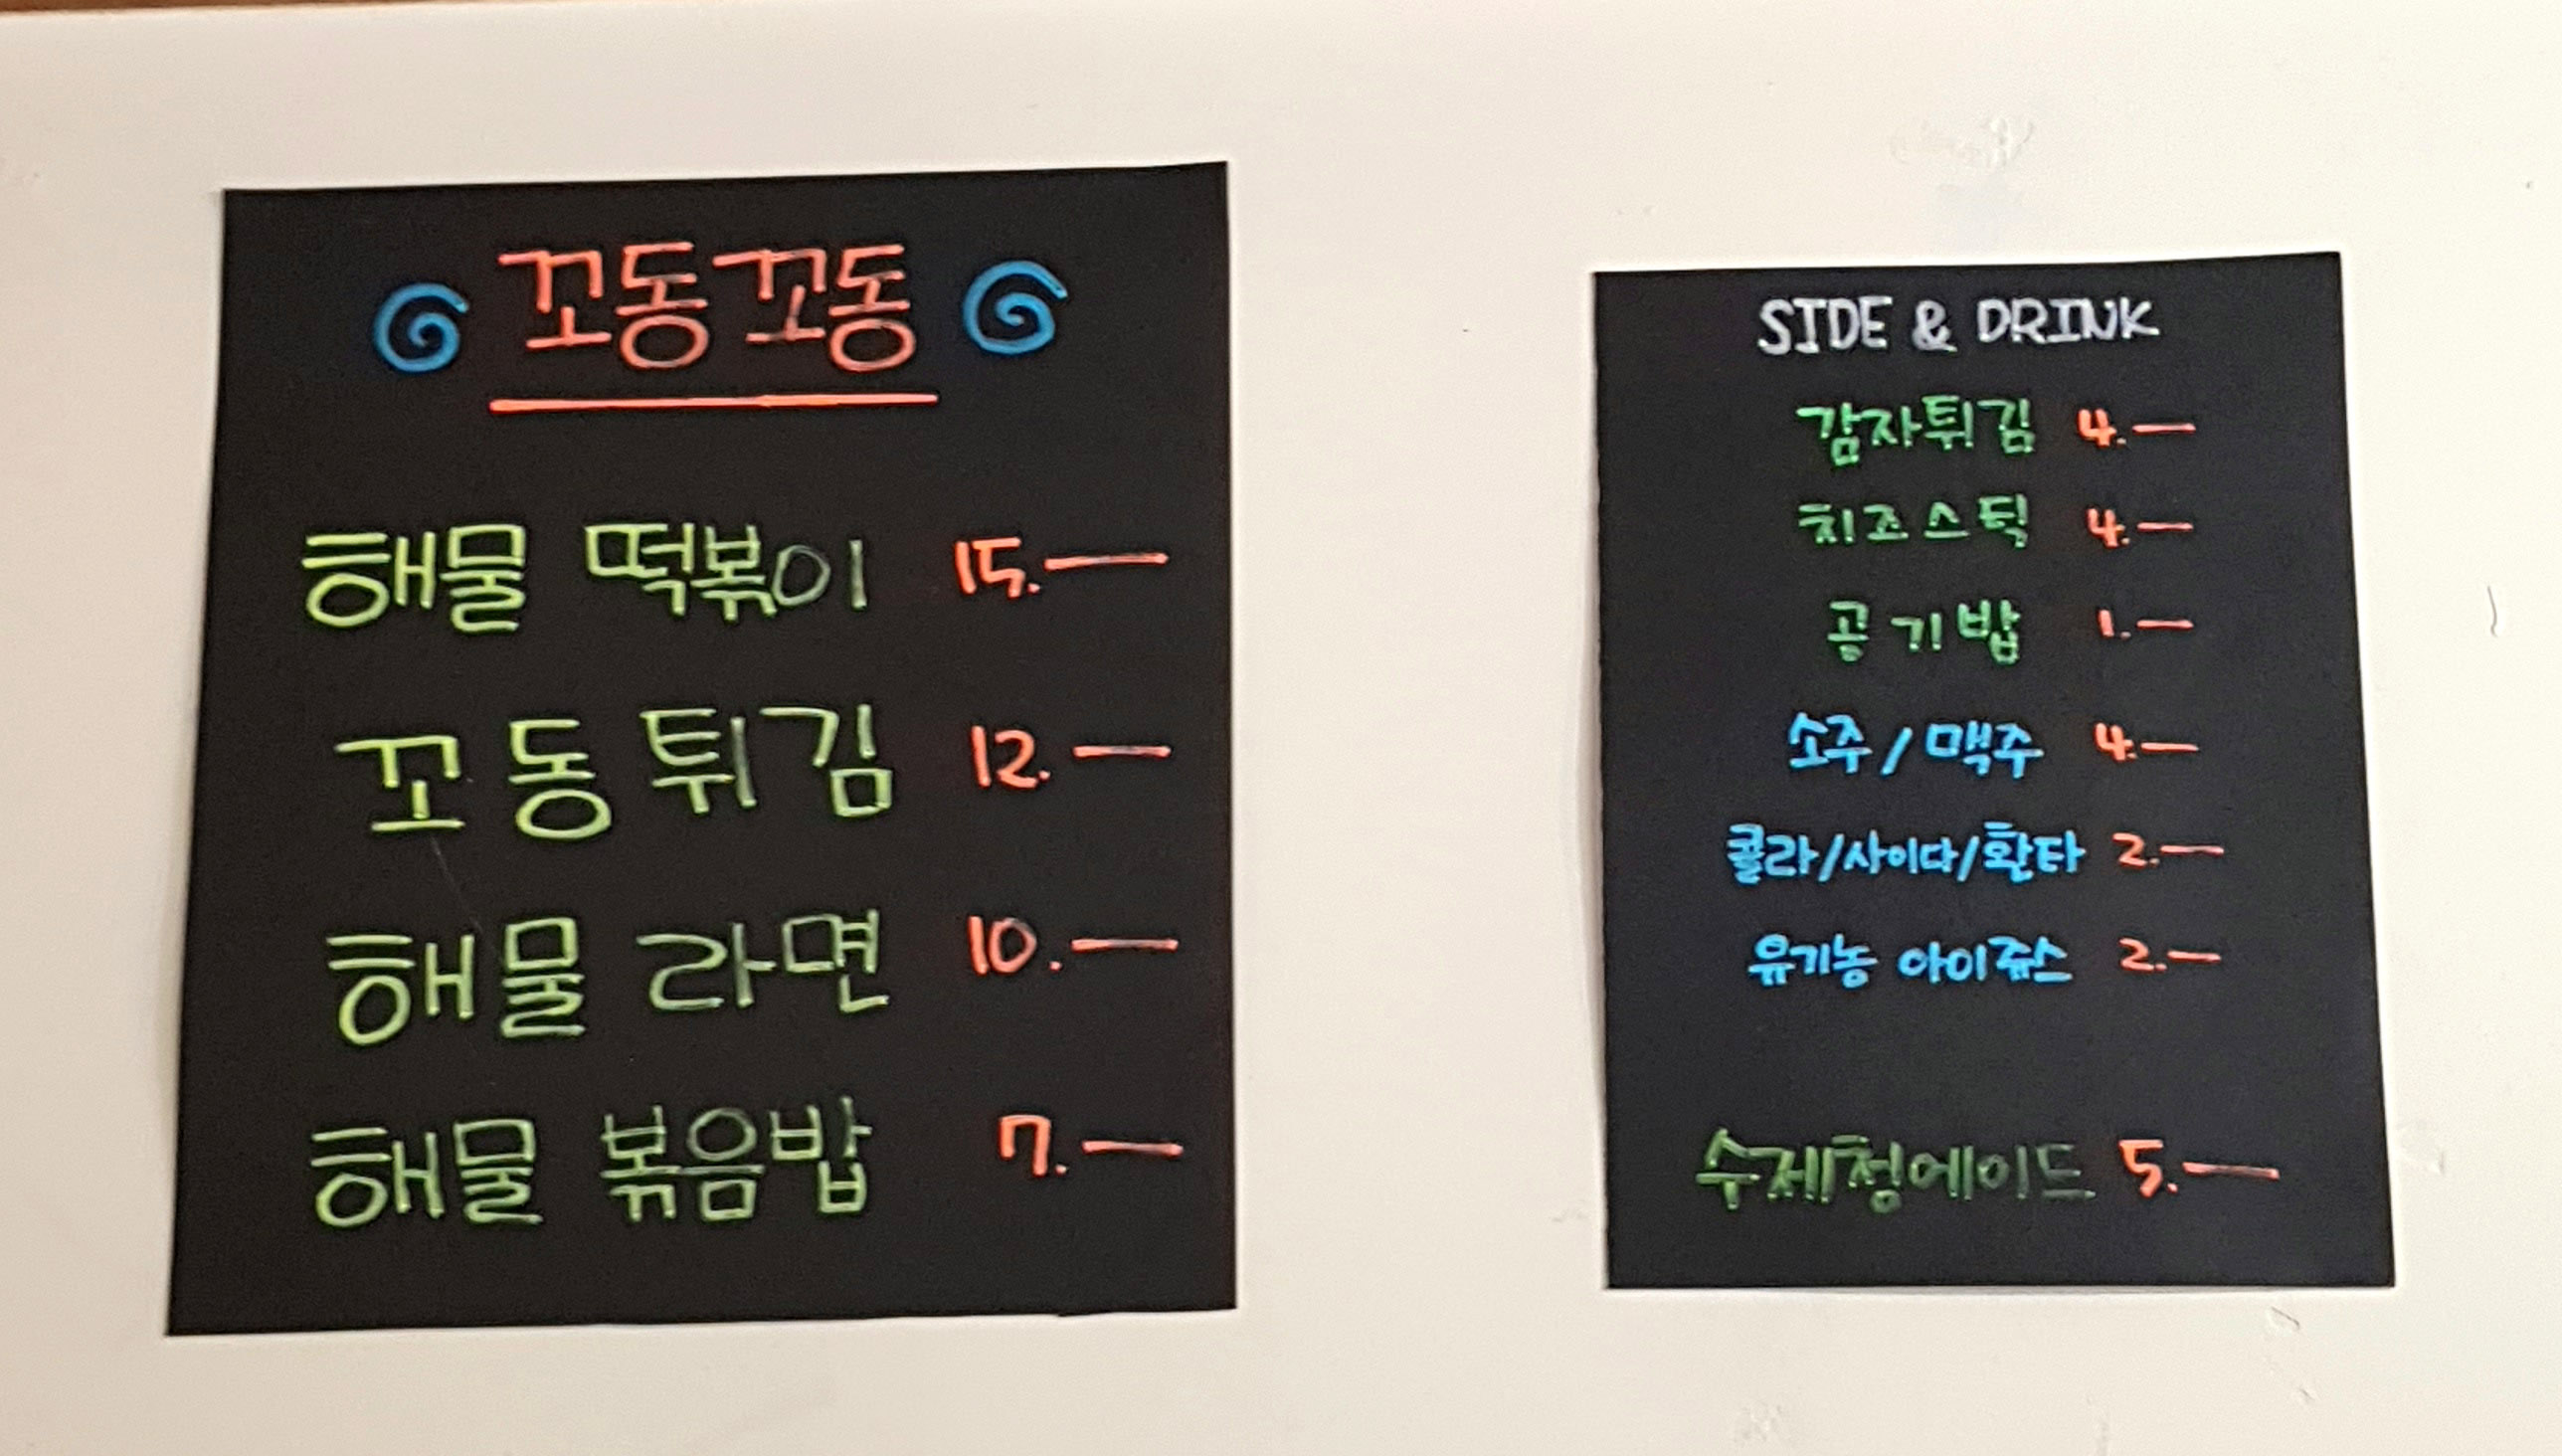 꼬동꼬동
해물 떡볶이 15.—
꼬동튀김 12.—
해물 라면 10.—
해물 볶음밥 7.—
SIDE & DRINK
감자튀김 4.—
치즈스틱 4.—
공기밥 1.—
소주/맥주 4.—
콜라/사이다/환타 2.—
유기농 아이쥬스 2.—
수제청에이드 5.—